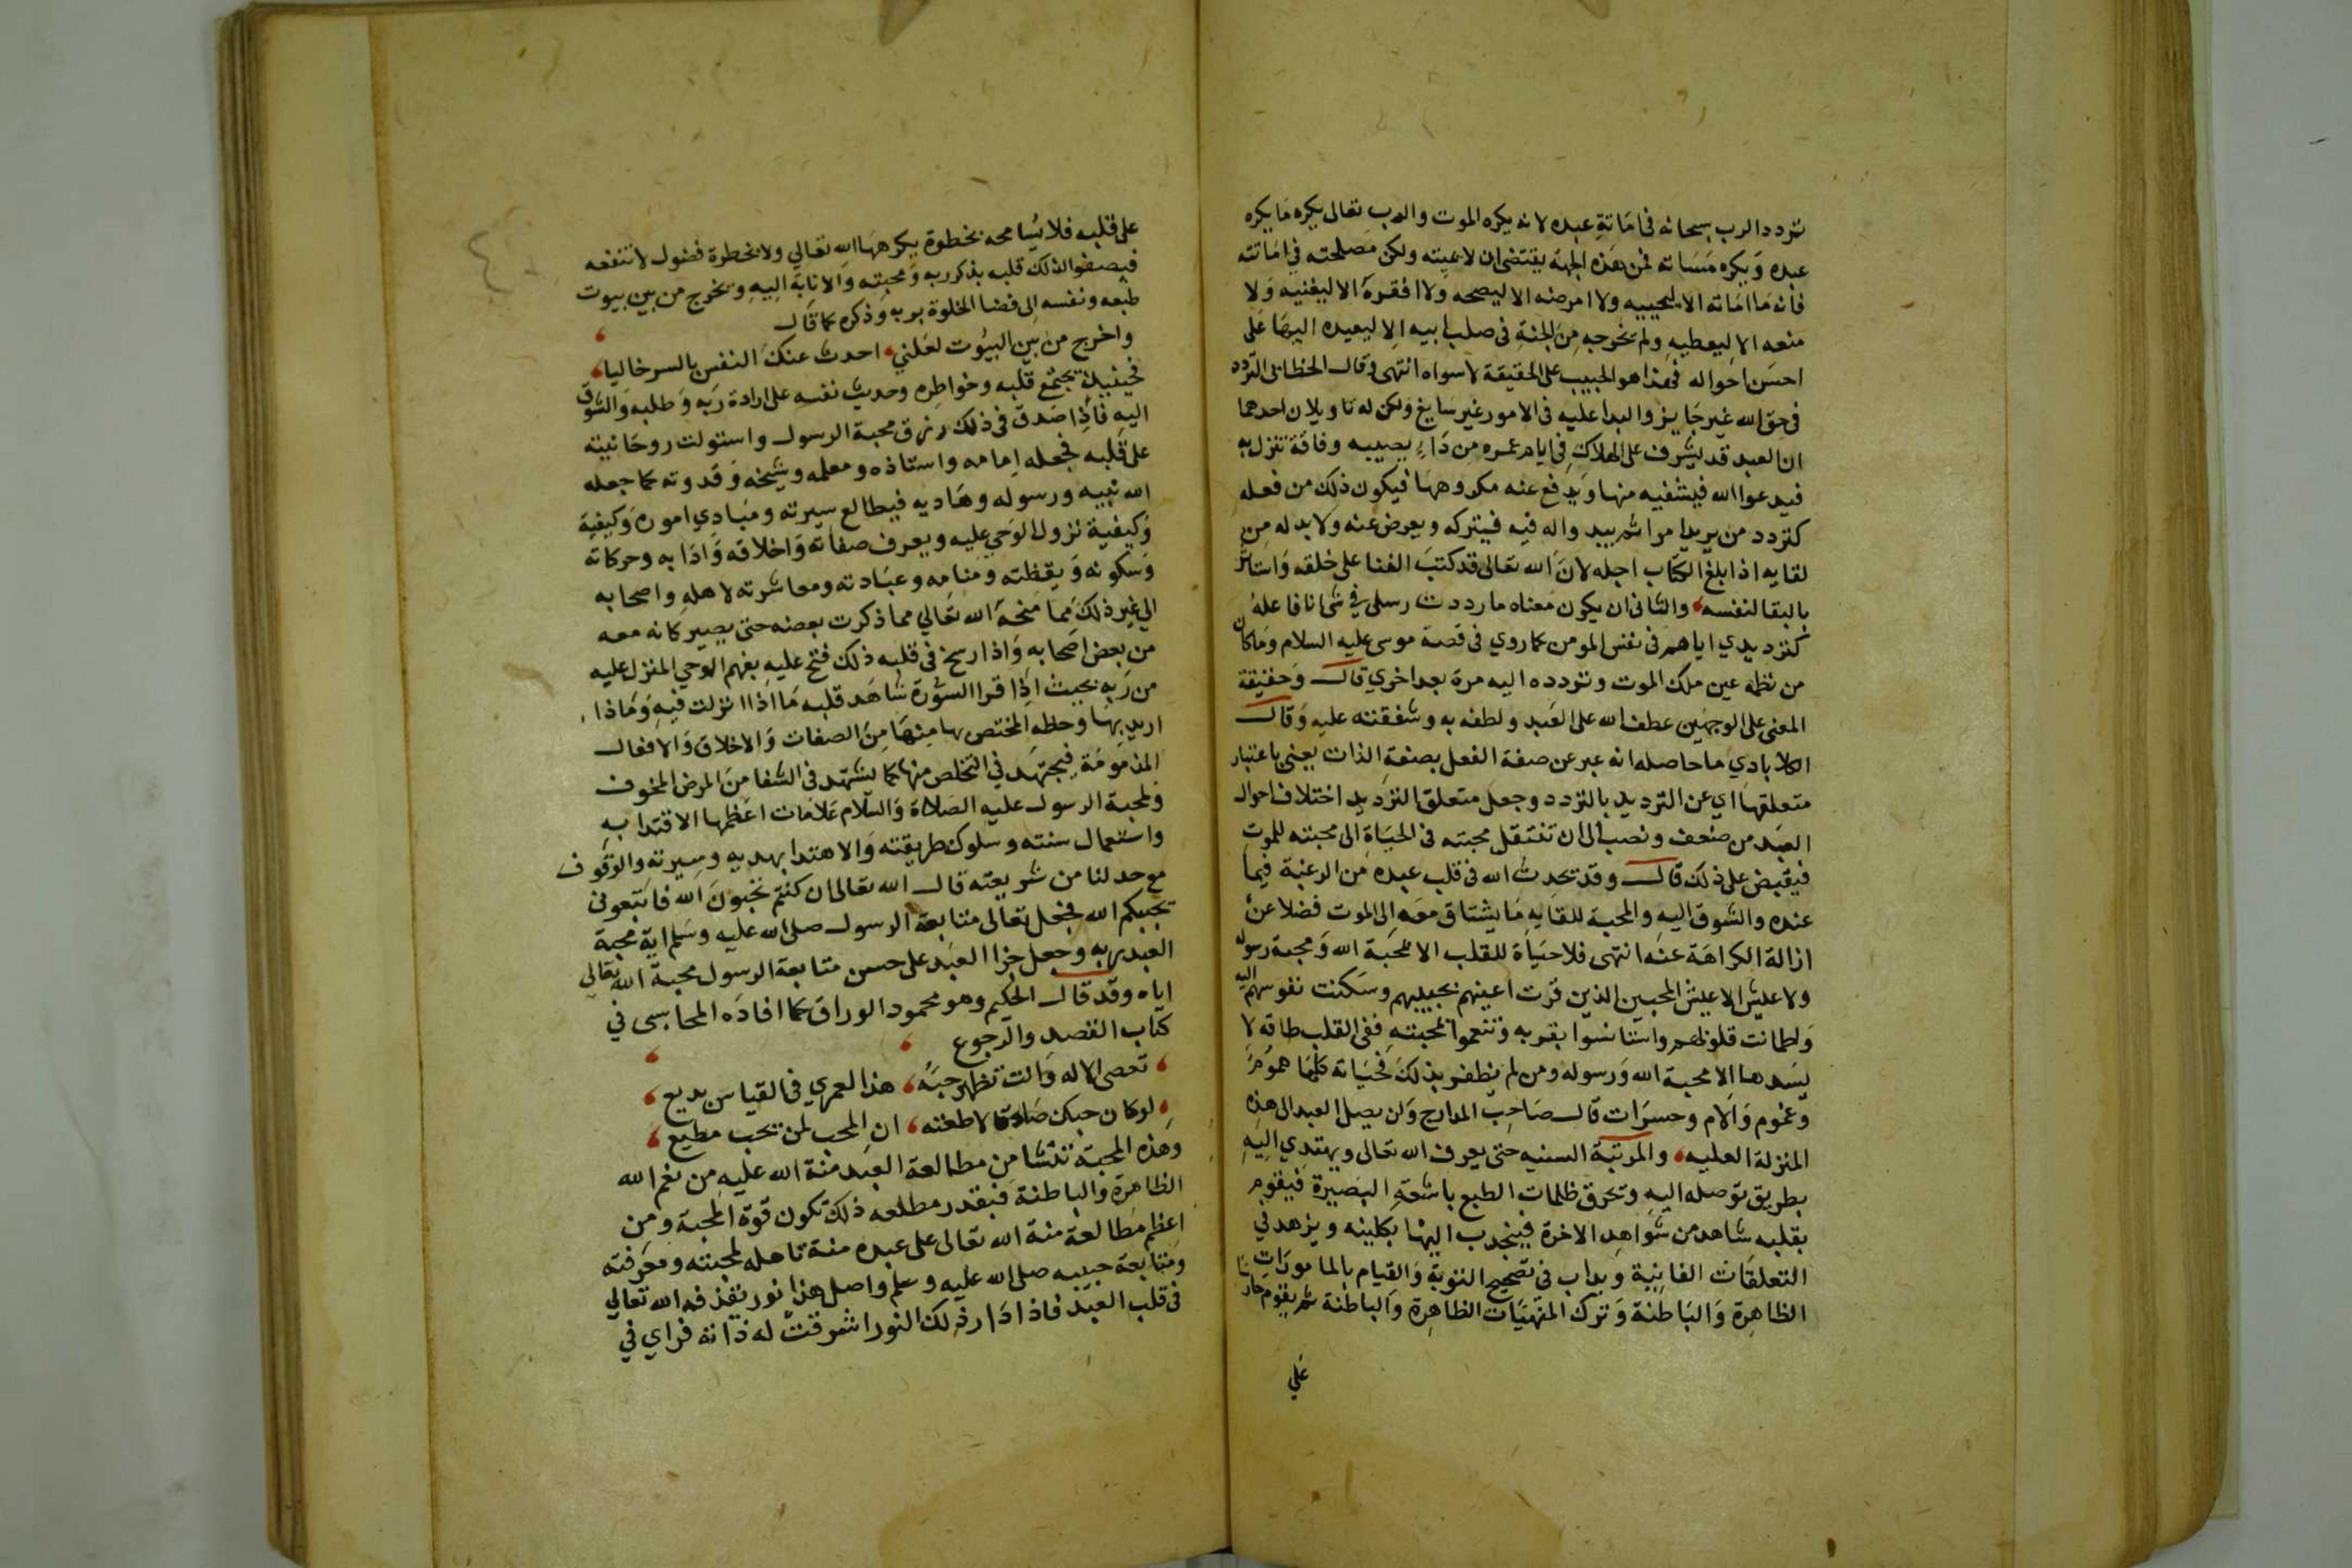 تردد الرب سبحانه في اماتة عبده لانه يكره الموت والرب تعالى يكره ما يكره
عبده ويكره مساته فمن هذه الجهة يقتضي ان لا يميته ولكن مصلحته في اماتته
فانه ما اماته الا ليحييه ولا امرضه الا ليصحه ولا افقره الا ليغنيه ولا
منعه الا ليعطيه ولم يخرجه من الجنة في صلب ابيه الا ليعيده اليها على
احسن احواله فهذا هو الحبيب على الحقيقة لا سواه انتهى وقال الخطابي التردد
في حق الله غير جايز والبدا عليه في الامور غير سايغ ولكن له تاويلان احدهما
ان العبد قد يشرف على الهلاك في ايام عمره من داء يصيبه وفاقة تنزل به
فيدعوا الله فيشفيه منها ويدفع عنه مكروهها فيكون ذلك من فعله
كتردد من يريد امرا ثم يبدو اله فيه فيتركه ويعرض عنه ولا بد له من
لقايه اذا بلغ الكتاب اجله لان الله تعالى قد كتب الفنا على خلقه واستاثر
بالبقا لنفسه والثاني ان يكون معناه ما رددت رسلي في شي انا فاعله
كترديدي اياهم في نفس المومن كما روي في قصة موسى عليه السلام وما كان
من لطمه عين ملك الموت وتردده اليه مرة بعد اخري قال وحقيقة
المعنى على الوجهين عطف الله على العبد ولطفه به وشفقته عليه وقال
الكلابادي ما حاصله انه عبر عن صفة الفعل بصفة الذات يعني باعتبار
متعلقها اي عن الترديد بالتردد وجعل متعلق الترديد اختلاف احوال
العبد من ضعف ونصب الى ان تنتقل محبته في الحياة الى محبته للموت
فيقبض على ذلك قال وقد يحدث الله في قلب عبده من الرغبة فيما
عنده والشوق اليه والمحبة للقايه ما يشتاق معه الى الموت فضلا عن
ازالة الكراهة عنه انتهى فلا حياة للقلب الا بمحبة الله ومحبة رسوله
ولا عيش الا عيش المحبين الذين قرت اعينهم بحبيبهم وسكنت نفوسهم اليه
واطمانت قلوبهم واستانسوا بقربه وتنعموا بمحبته ففي القلب طاقة لا
يسدها الا محبة الله ورسوله ومن لم يظفر بذلك فحياته كلها هموم
وغموم والام وحسرات قال صاحب المدارج ولن يصل العبد الى هذه
المنزلة العليه والمرتبة السنيه حتى يعرف الله تعالى ويهتدي اليه
بطريق توصله اليه وتخرق ظلمات الطبع باشعة البصيرة فيقوم
بقلبه شاهد من شواهد الاخرة فينجذب اليها بكليته ويزهد في
التعلقات الفانية ويداب في تصحيح التوبة والقيام بالمامورات
الظاهرة والباطنة وترك المنهيات الظاهرة والباطنة ثم يقوم حارسا
على
على قلبه فلا يسامحه بخطوة يكرهها الله تعالي ولا بخطرة فضول لا تنفعه
فيصفوا لذلك قلبه بذكر ربه ومحبته والانابة اليه ويخرج من بين بيوت
طبعه ونفسه الى فضا الخلوة بربه وذكره كما قال
واخرج من بين البيوت لعلني احدث عنك النفس بالسر خاليا
فحينئذ يجتمع قلبه وخواطره وحديث نفسه على ارادة ربه وطلبه والشوق
اليه فاذا صدق في ذلك رزق محبة الرسول واستولت روحانيته
على قلبه فجعله امامه واستاذه ومعلمه وشيخه وقدوته كما جعله
الله نبيه ورسوله وهاديه فيطالع سيرته ومبادي اموره وكيفية
وكيفية نزول الوحي عليه ويعرف صفاته واخلاقه وادابه وحركاته
وسكونه ويقظته ومنامه وعبادته ومعاشرته لاهله واصحابه
الي غير ذلك مما منحه الله تعالي مما ذكرت بعضه حتى يصير كانه معه
من بعض اصحابه واذا رسخ في قلبه ذلك فتح عليه بفهم الوحي المنزل عليه
من ربه بحيث اذا قرا السورة شاهد قلبه ما اذا انزلت فيه وماذا
اريد بها وحظه المختص بها منها من الصفات والاخلاق والافعال
المذمومة فيجتهد في التخلص منها كما يشتهد في الشفا من المرض المخوف
ولمحبة الرسول عليه الصلاة والسلام علامات اعظمها الاقتدا به
واستعمال سنته وسلوك طريقته والاهتدا بهديه وسيرته والوقوف
مع ما حد لنا من شريعته قال الله تعالى ان كنتم تحبون الله فاتبعوني
يحببكم الله فجعل تعالى متابعة الرسول صلى الله عليه وسلم اية محبة
العبد ربه وجعل جزا العبد على حسن متابعة الرسول محبة الله تعالى
اياه وقد قال الحكيم وهو محمود الوراق كما افاده المحاسبي في
كتاب القصد والرجوع
تعصى الاله وانت تظهر حبه هذا لعمري في القياس بديع
لو كان حبك صادقا لاطعته ان المحب لمن يحب مطيع
وهذه المحبة تنشا من مطالعة العبد منة الله عليه من نعم الله
الظاهرة والباطنة فبقدر مطلعه ذلك تكون قوة المحبة ومن
اعظم مطالعة منة الله تعالى على عبده منة تاهله لمحبته ومعرفته
ومتابعة حبيبه صلى الله عليه وسلم واصل هذا نور يقذفه الله تعالي
في قلب العبد فاذا دار ذلك النور اشرقت له ذاته فراي في